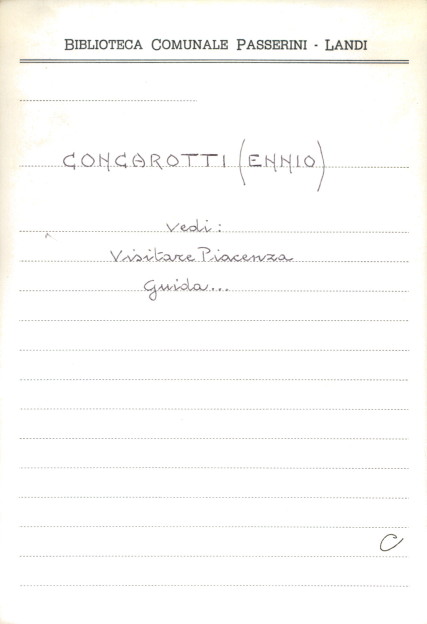 BIBLIOTECA COMUNALE PASSERINI - LANDI
CONCAROTTI (ENNIO)
Vedi:
Visitare Piacenza
Guida...
C